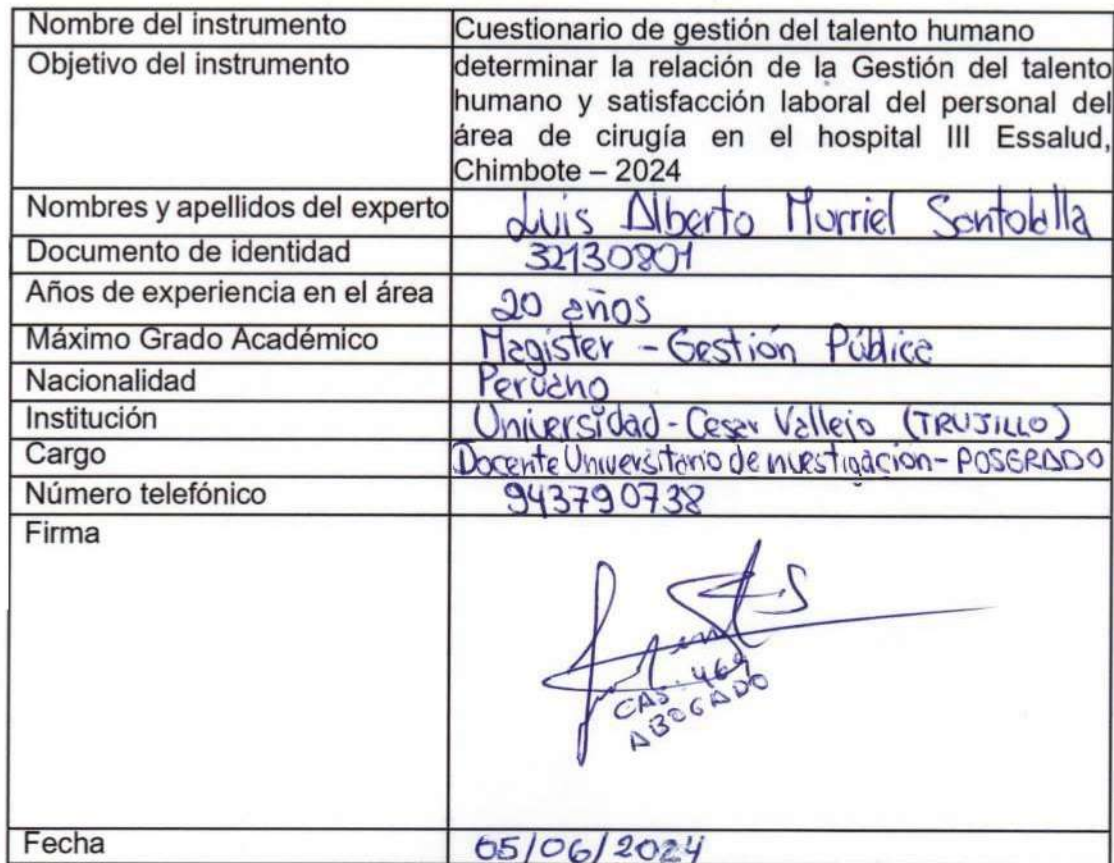 Nombre del instrumento Cuestionario de gestión del talento humano
Objetivo del instrumento determinar la relación de la Gestión del talento
humano y satisfacción laboral del personal del
área de cirugía en el hospital III Essalud,
Chimbote – 2024
Nombres y apellidos del experto Luis Alberto Murriel Santolalla
Documento de identidad 32130801
Años de experiencia en el área 20 años
Máximo Grado Académico Magister - Gestión Pública
Nacionalidad Peruano
Institución Universidad - Cesar Vallejo (TRUJILLO)
Cargo Docente Universitario de investigación - POSGRADO
Número telefónico 943790738
Firma
CAS. 469
ABOGADO
Fecha 05/06/2024